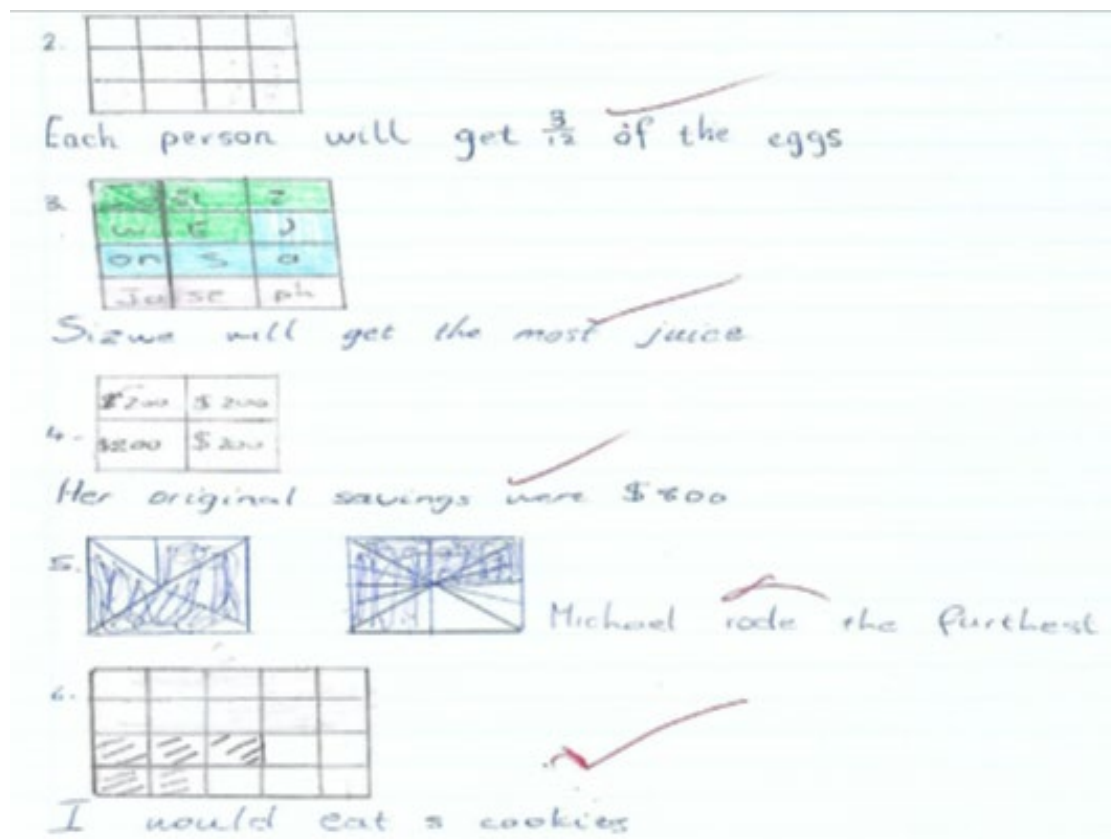 2.
Each person will get 3/12 of the eggs
3.
Si z
w E J
on s a
Jo se ph
Sizwe will get the most juice
$200 $200
4. $200 $200
Her original savings were $800
5.
Michael rode the furthest
6.
I would eat 5 cookies